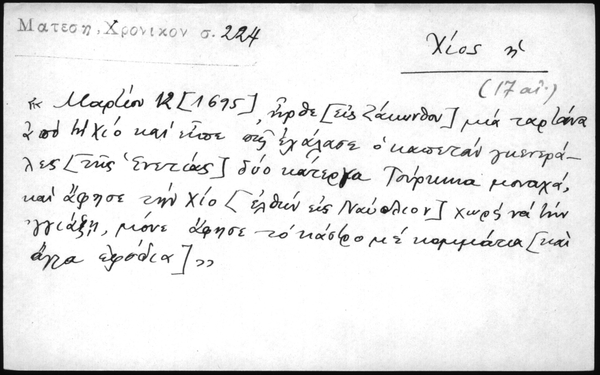 Ματεση, Χρονικον σ. 224
Χίος ἡ
(17 αἰ.)
« Μαρτίου 12 [1695], ἦρθε [εἰς Ζάκυνθον] μιά ταρτάνα
ἀπό τή Χιό καί εἶπε πῶς ἐχάλασε ὁ καπετάν γκενερά-
λες [τῆς Ἑνετίας] δύο κάτεργα Τούρκικα μοναχά,
καί ἄφησε τήν Χίο [ἐλθών εἰς Ναύπλιον] χωρίς νά τήν
γγιάξη, μόνε ἄφησε τό κάστρο μέ κομμάτια [καί
ἄλλα ἐφόδια] »